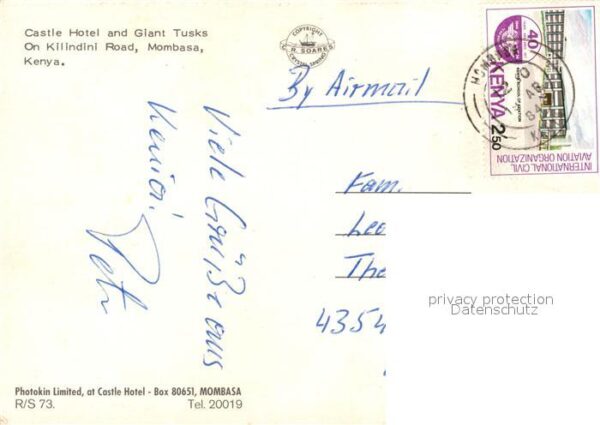 Castle Hotel and Giant Tusks
On Kilindini Road, Mombasa,
Kenya.
COPYRIGHT
R. SOARES
By Airmail
MOMBASA
40
KENYA 2/50
INTERNATIONAL CIVIL
AVIATION ORGANIZATION
Viele Grüße aus
Kenia!
Fam.
Lee
The
4354
privacy protection
Datenschutz
Photokin Limited, at Castle Hotel - Box 80651, MOMBASA
R/S 73.
Tel. 20019